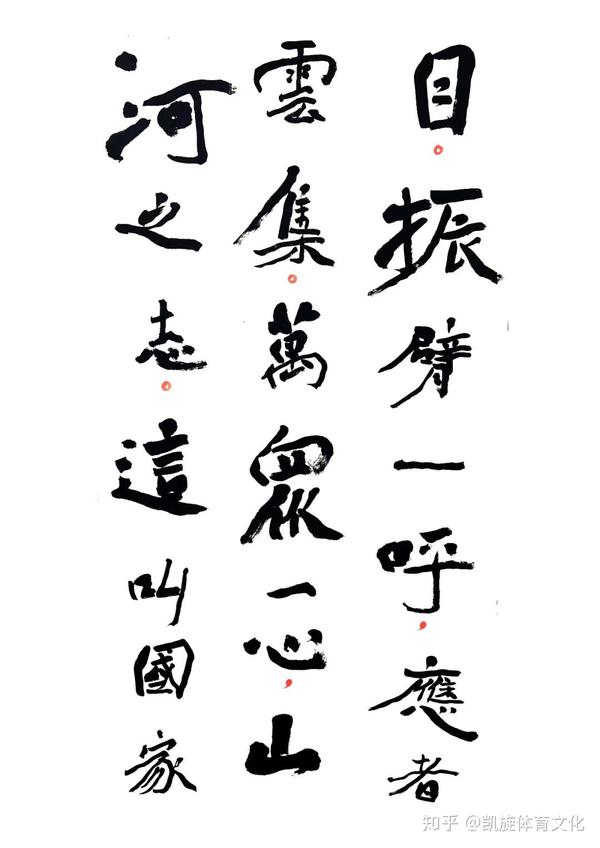 目。振臂一呼，應者
雲集。萬眾一心，山
河之志。這叫國家
知乎 @凯旋体育文化